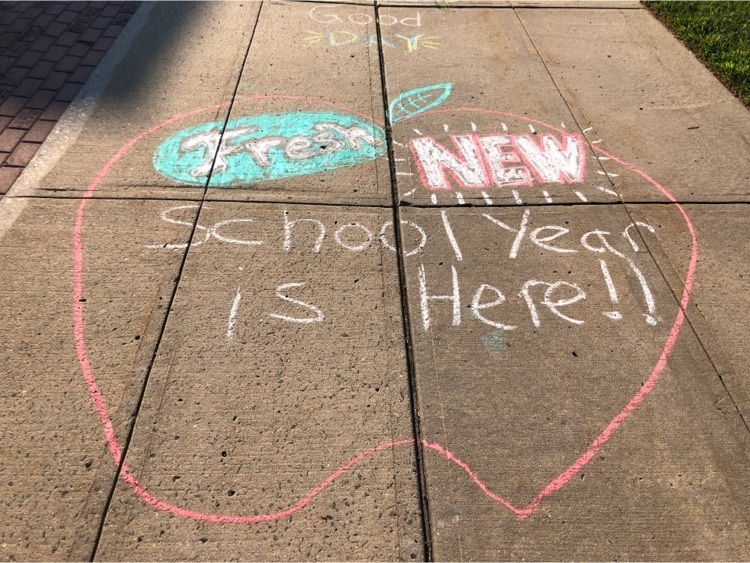 Good
DAY
Fresh NEW
School Year
is Here!!